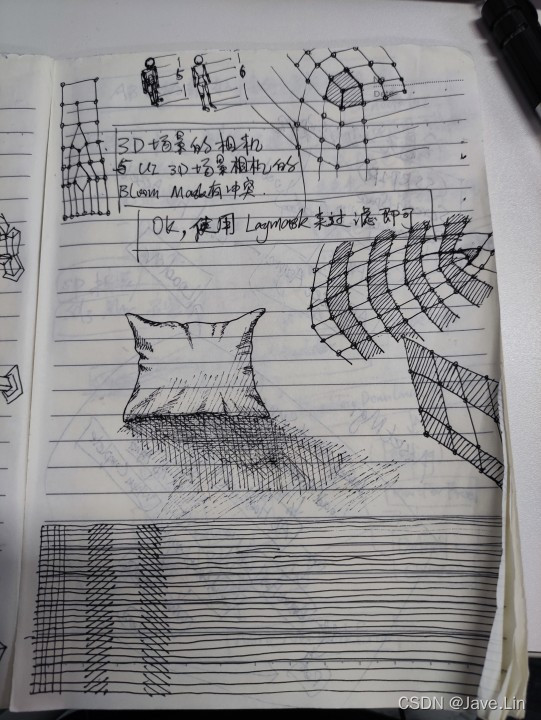 5
6
3D场景的相机
与 UI 3D场景相机的
Bloom Mask有冲突.
OK, 使用 Laymask 来过滤即可
CSDN @Jave.Lin